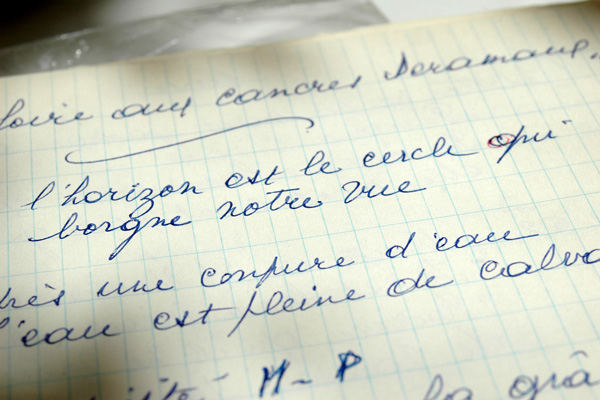 foire aux cancres
l'horizon est le cercle qui
borgne notre vue
près une coupure d'eau
l'eau est pleine de calva
la grâ